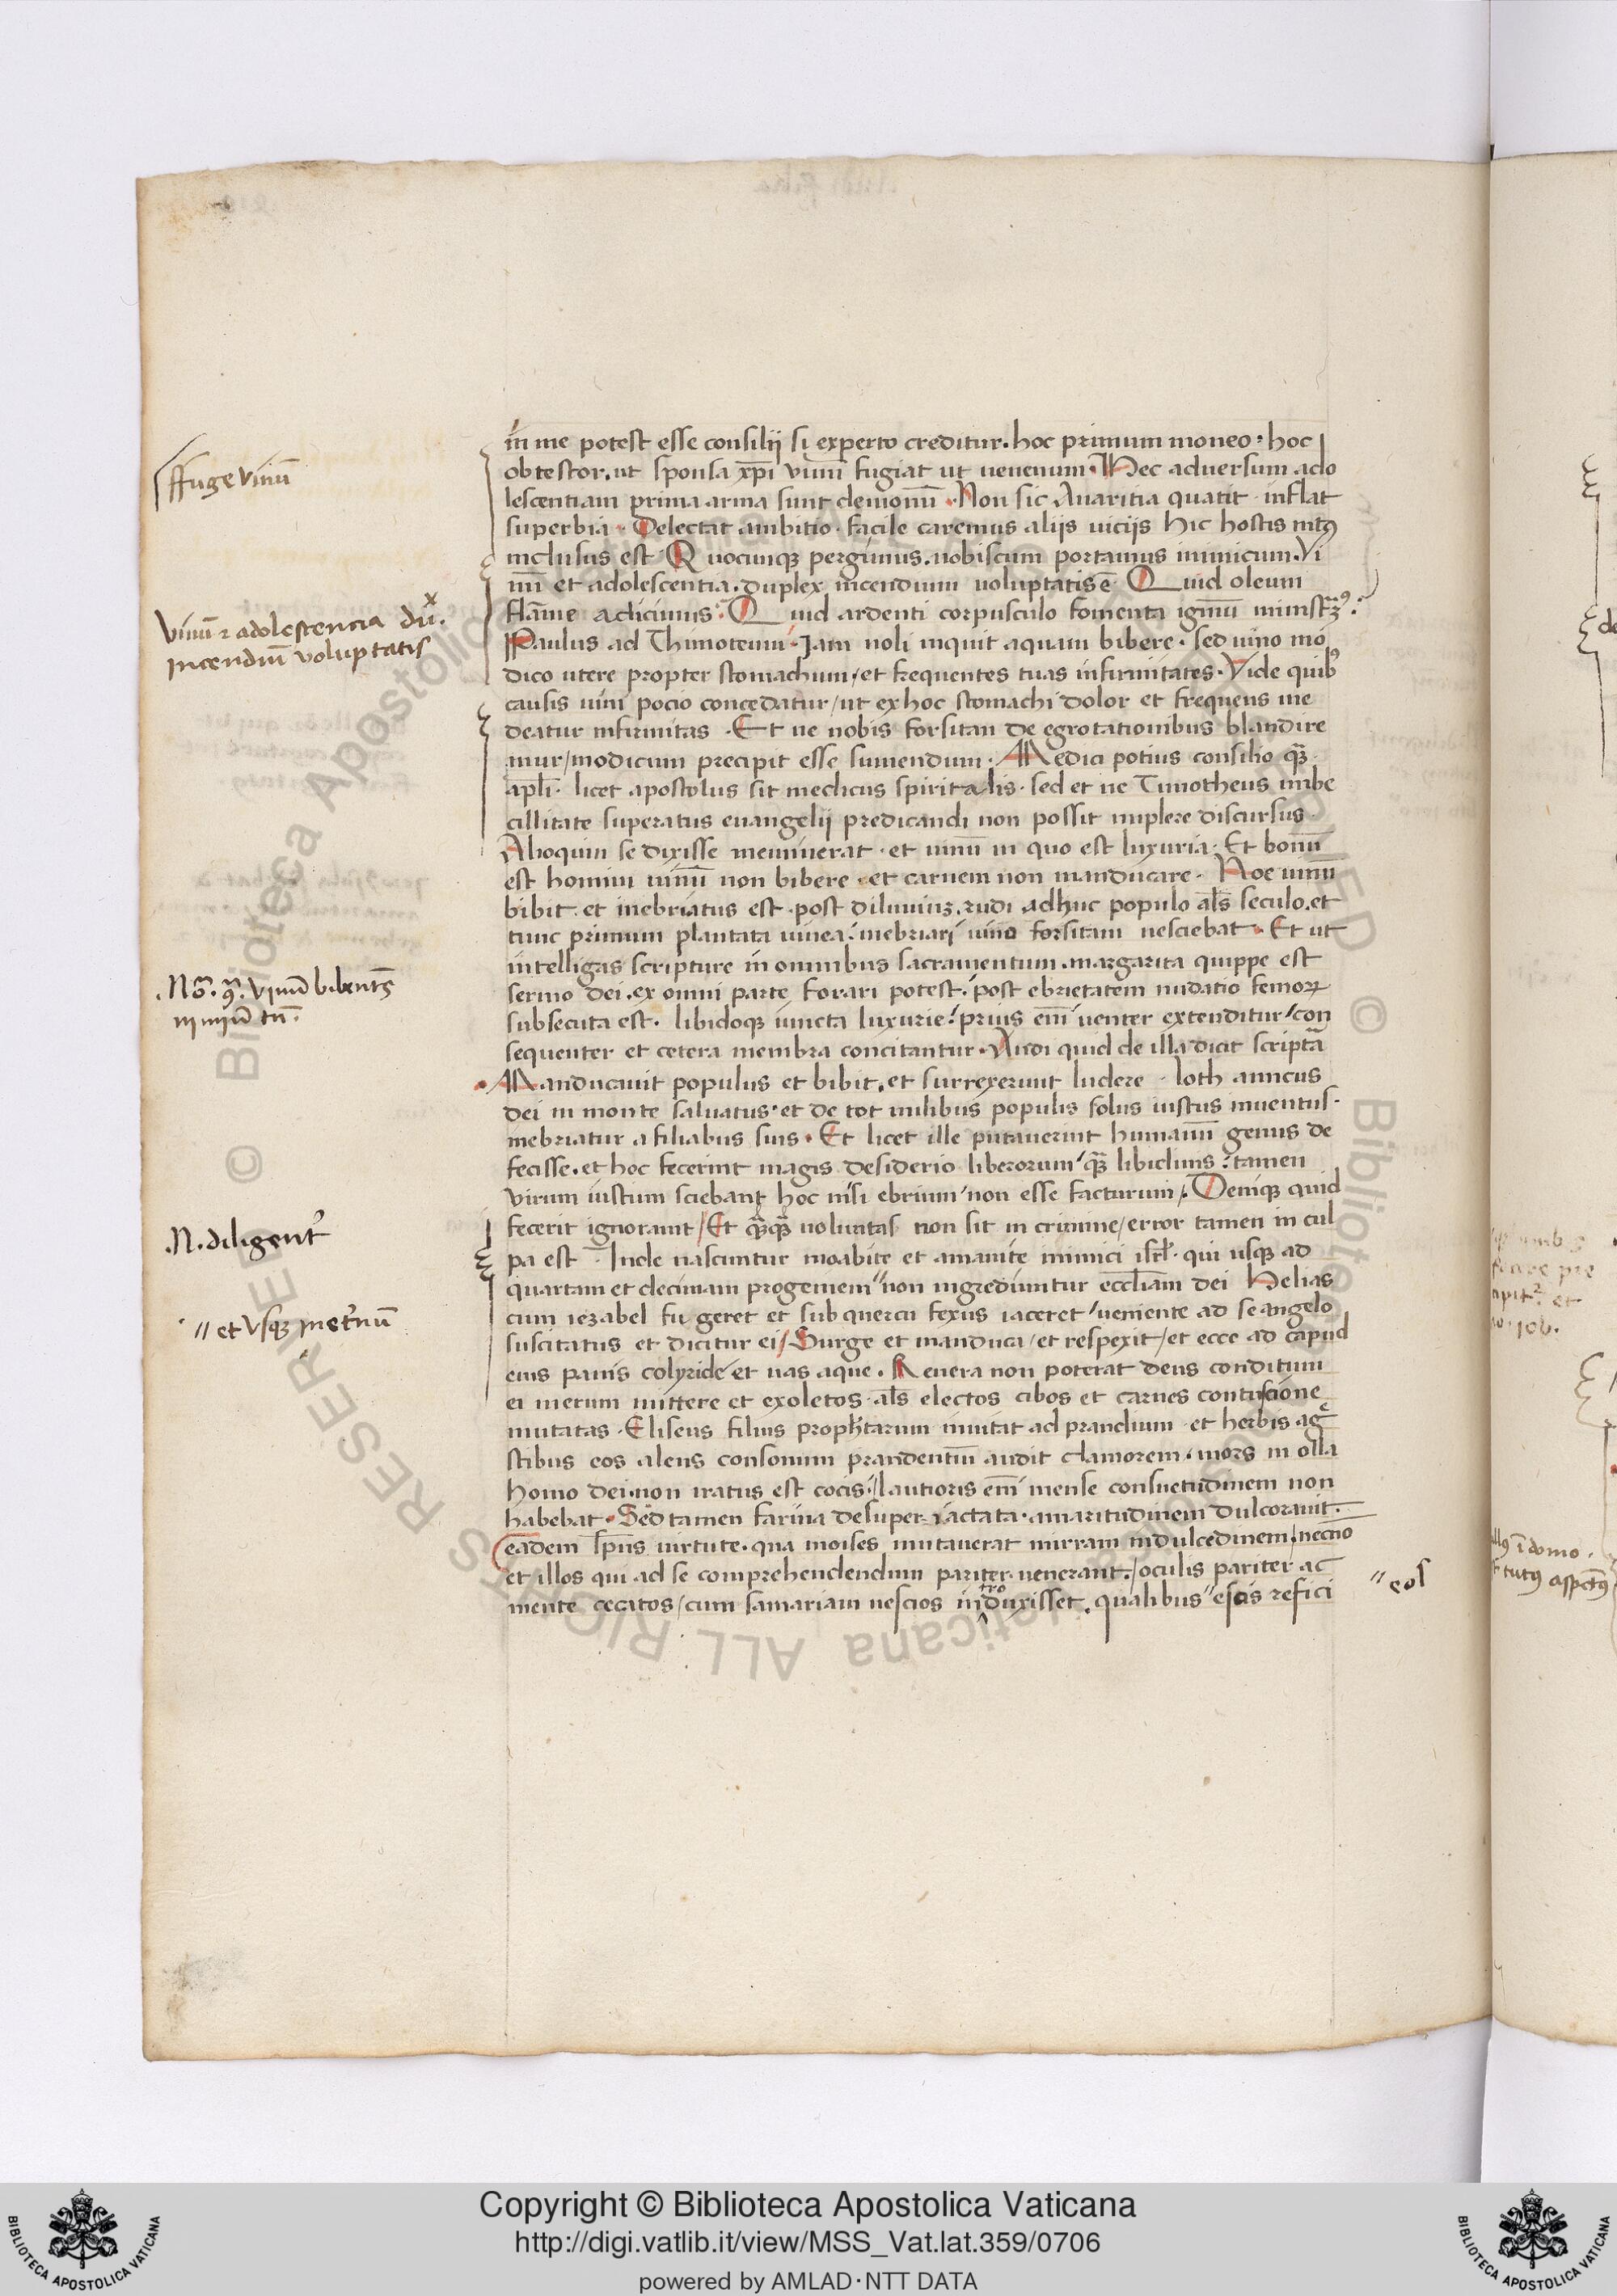 in me potest esse consilij si experto creditur. hoc primum moneo. hoc
obtestor. ut sponsa xp̄i vinū fugiat ut uenenum. Hec adversum ado
lescentiam prima arma sunt demonū. Non sic Avaritia quatit. inflat
superbia. Delectat ambitio. facile caremus aliis vicijs hic hostis intꝰ
inclusus est. Quocunqꝫ pergimus. nobiscum portamus inimicum. Vi
nū et adolescentia. duplex incendium voluptatis ē. Quid oleum
flāme adicimus. Quid ardenti corpusculo fomenta igniū
Paulus ad Thimoteum. Jam noli inquit aquam bibere. sed uino mo
dico utere propter stomachum/ et frequentes tuas infirmitates. Vide quibꝰ
causis vini pocio concedatur/ ut ex hoc stomachi dolor et frequens me
deatur infirmitas. Et ne nobis forsitan de egrotationibus blandire
mur/ modicum precipit esse sumendum. Medici potius consilio qꝫ̄
apl̄i. licet apostolus sit medicus spiritalis. sed et ne Timotheus imbe
cillitate superatus euangelij predicandi non possit implere discursus.
Alioquin se dixisse meminerat. et uinū in quo est luxuria. Et bonū
est homini uinū non bibere. et carnem non manducare. Noe uinū
bibit. et inebriatus est. post diluuiuꝫ. rudi adhuc populo al̄s seculo. et
tunc primum plantata vinea. inebriari uino forsitam nesciebat. Et ut
intelligas scripture in omnibus sacramentum. margarita quippe est
sermo dei. ex omni parte forari potest. post ebrietatem nudatio femoꝝ
subsecuta est. libidoqꝫ iuncta luxurie. prius em̄ uenter extenditur/ con
sequenter et cetera membra concitantur. Audi quid de illa dicit scriptā
Manducauit populus et bibit. et surrexerunt ludere. loth amicus
dei in monte saluatus. et de tot milibus populis solus iustus inuentus.
inebriatur a filiabus suis. Et licet ille putauerint humanū genus de
fecisse. et hoc fecerint magis desiderio liberorum/ qꝫ̄ libidinis. tamen
virum iustum sciebant hoc nisi ebrium/ non esse facturum/. Deniqꝫ quid
fecerit ignorant/ Et qꝫ̄qꝫ̄ voluntas non sit in crimine/ error tamen in cul
pa est. Inde nascuntur moabite et amanite inimici isrl̄. qui usqꝫ ad
quartam et decimam progeniem " non ingrediuntur eccl̄iam dei Helias
cum iezabel fugeret et sub quercu fexus iaceret/ ueniente ad se angelo
suscitatus et dicitur ei/ Surge et manduca/ et respexit/ et ecce ad capud
eius panis colyride/ et uas aque. Reuera non poterat deus conditum
ei merum mittere et exoletos al̄s electos cibos et carnes contuscione
mutatas. Eliseus filius proph̄tarum inuitat ad prandium et herbis agꝛē
stibus eos alens consonum prandentiū audit clamorem. mors in olla
homo dei. non iratus est cocis. lautioris em̄ mense consuetudinem non
habebat. Sed tamen farina desuper iactata. amaritudinem dulcorauit.
eadem sp̄us uirtute. qua moises mutauerat mirram in dulcedinem/ necnō
et illos qui ad se comprehendendum pariter uenerant./ oculis pariter ac
mente cecatos/ cum samariam nescios introduxisset. qualibus " escis refici
ffuge vinū
Vinū ⁊ adolescencia dū.x
incendiū voluptatis
.Nō. qꝫ. vinū bibentꝭ
nimiū tn̄.
.N. diligentꝰ
" et Vsqꝫ in et'nū
" eos
Copyright © Biblioteca Apostolica Vaticana
http://digi.vatlib.it/view/MSS_Vat.lat.359/0706
powered by AMLAD·NTT DATA